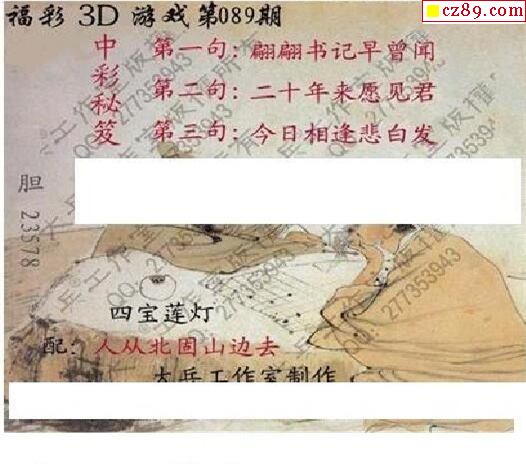 cz89.com
福彩 3D 游戏第089期
中彩秘笈
第一句：翩翩书记早曾闻
第二句：二十年来愿见君
第三句：今日相逢悲白发
胆 23578
四宝莲灯
配：人从北固山边去
大兵工作室制作
大兵工作室版權所有
QQ:277353943